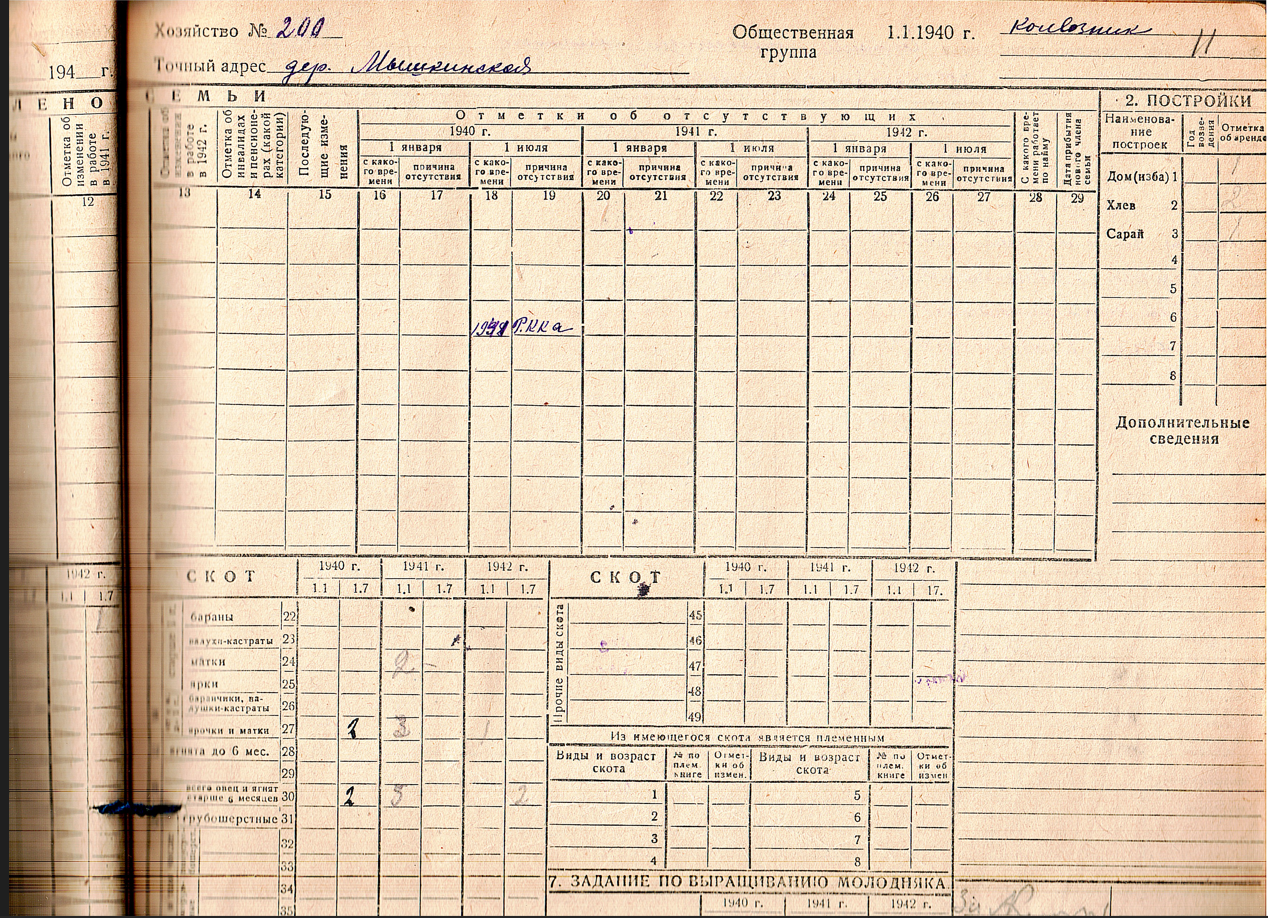 Хозяйство № 200
Общественная группа 1.1.1940 г. колхозник
11
Точный адрес дер. Мышкинская
194 г.
ЛЕНО
СЕМЬИ
2. ПОСТРОЙКИ
Отметка об изменении в работе в 1941 г.
в работе в 1942 г.
Отметка об инвалидах и пенсионерах (какой категории)
Последующие изменения
Отметки об отсутствующих
1940 г. 1941 г. 1942 г.
1 января 1 июля 1 января 1 июля 1 января 1 июля
с како-го вре-мени причина отсутствия с како-го вре-мени причина отсутствия с како-го вре-мени причина отсутствия с како-го вре-мени причина отсутствия с како-го вре-мени причина отсутствия с како-го вре-мени причина отсутствия
С какого вре-мени работает по найму
Дата прибытия нового члена семьи
Наименова-ние построек
Год возве-дения
Отметка об аренде
12 13 14 15 16 17 18 19 20 21 22 23 24 25 26 27 28 29
Дом(изба) 1 1
Хлев 2 2
Сарай 3 1
4
5
6
7
8
РККа
Дополнительные сведения
1942 г.
1.1 1.7
1
СКОТ 1940 г. 1941 г. 1942 г.
1.1 1.7 1.1 1.7 1.1 1.7
бараны 22
валухи-кастраты 23
матки 24 2
ярки 25
баранчики, ва-лушки-кастраты 26
ярочки и матки 27 2 3 1
ягнята до 6 мес. 28
29
всего овец и ягнят старше 6 месяцев 30 2 3 2
грубошерстные 31
32
33
34
35
СКОТ 1940 г. 1941 г. 1942 г.
1.1 1.7 1.1 1.7 1.1 17.
Прочие виды скота
45
46
47
48
49
Из имеющегося скота является племенным
Виды и возраст скота № по плем. книге Отмет-ки об измен. Виды и возраст скота № по плем. книге Отмет-ки об измен
1 5
2 6
3 7
4 8
7. ЗАДАНИЕ ПО ВЫРАЩИВАНИЮ МОЛОДНЯКА
1940 г. 1941 г. 1942 г.